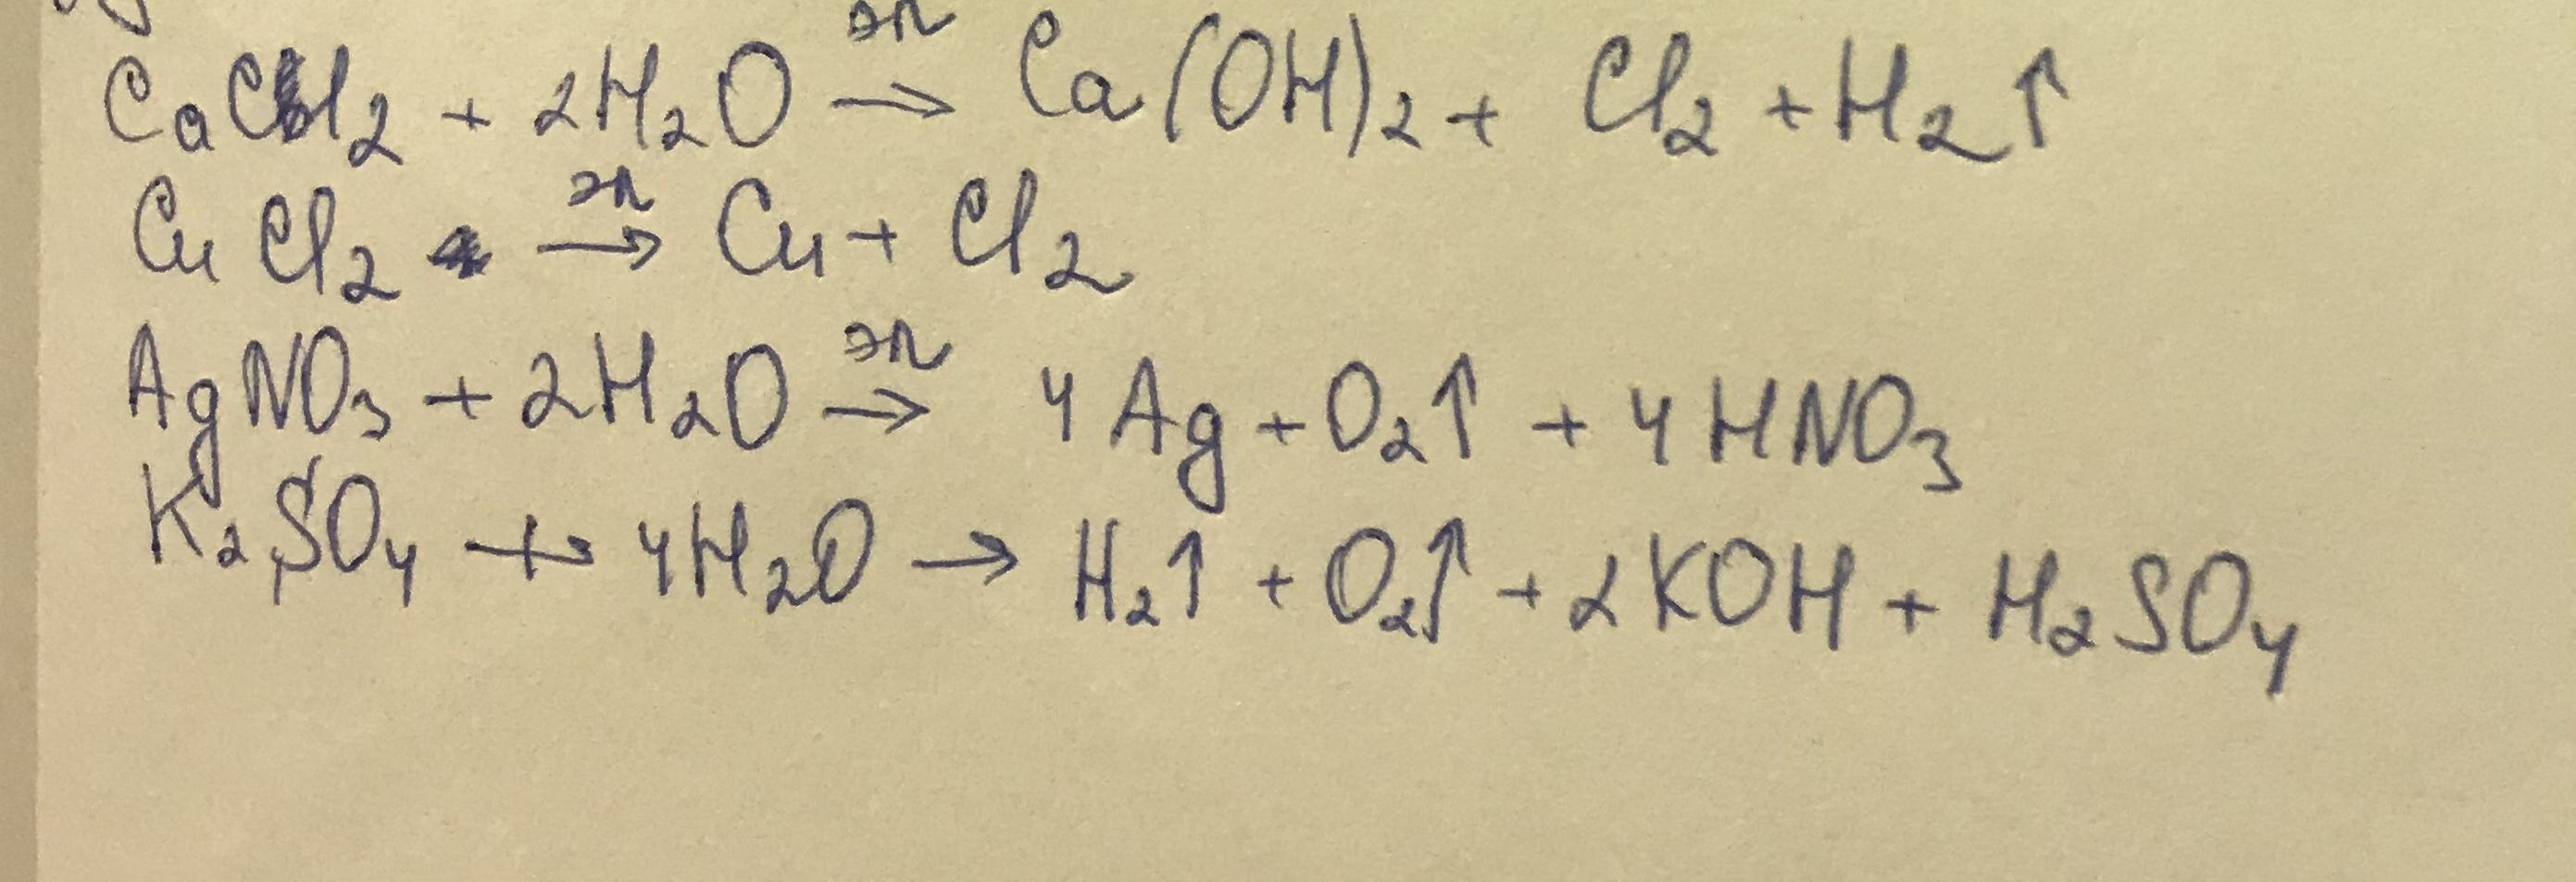 CaCl₂ + 2H₂O эл → Ca(OH)₂ + Cl₂ + H₂↑
CuCl₂ эл → Cu + Cl₂
AgNO₃ + 2H₂O эл → 4Ag + O₂↑ + 4HNO₃
K₂SO₄ + 4H₂O → H₂↑ + O₂↑ + 2KOH + H₂SO₄